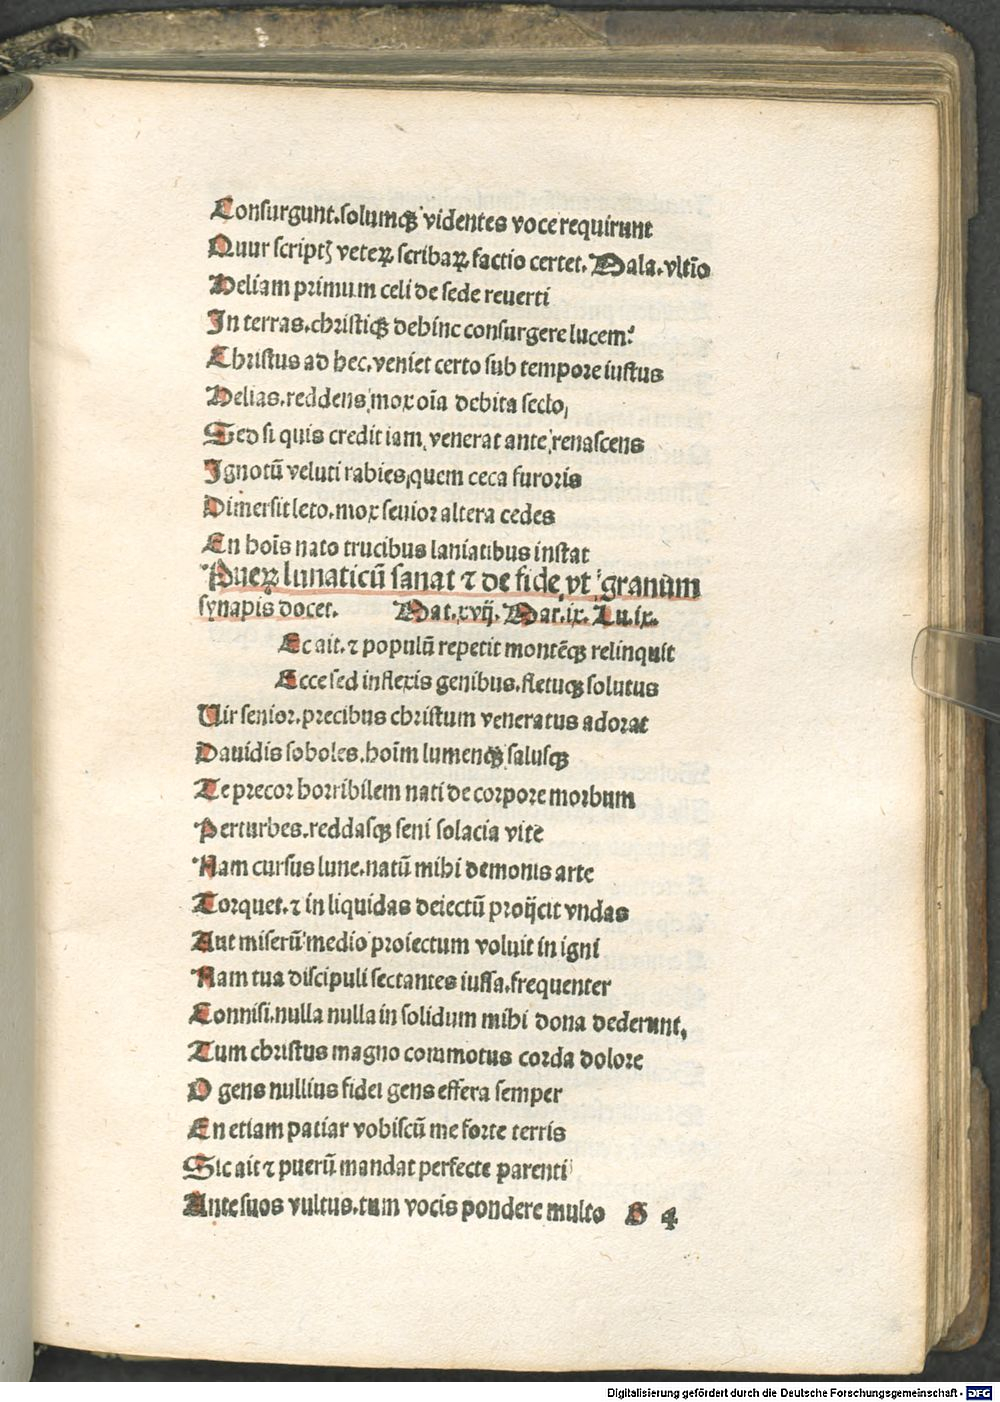 Consurgunt. solumqꝫ videntes voce requirunt
Quur scriptꝭ veteꝝ scribaꝝ factio certet. Mala. vltīo
Heliam primum celi de sede reuerti
In terras. christiqꝫ dehinc consurgere lucem?
Christus ad hec. veniet certo sub tempore iustus
Helias. reddens mox oīa debita seclo,
Sed si quis credit iam venerat ante renascens
Ignotū veluti rabies, quem ceca furoris
Dimersit leto. mox seuior altera cedes
En hoīs nato trucibus laniatibus instat
Pueꝝ lunaticū sanat ⁊ de fide, vt granum
synapis docet. Mat. xvij. Mar. ix. Lu. ix.
Ec ait. ⁊ populū repetit montēqꝫ relinquit
Ecce sed inflexis genibus. fletuqꝫ solutus
Uir senior. precibus christum veneratus adorat
Dauidis soboles. hoīm lumenqꝫ salusqꝫ
Te precor horribilem nati de corpore morbum
Perturbes. reddasqꝫ seni solacia vite
Nam cursus lune. natū mihi demonis arte
Torquet. ⁊ in liquidas deiectū proijcit vndas
Aut miserū medio proiectum voluit in igni
Nam tua discipuli sectantes iussa. frequenter
Connisi. nulla nulla in solidum mihi dona dederunt,
Tum christus magno commotus corda dolore
O gens nullius fidei gens effera semper
En etiam patiar vobiscū me forte terris
Sic ait ⁊ puerū mandat perfecte parenti
Ante suos vultus. tum vocis pondere multo G 4
Digitalisierung gefördert durch die Deutsche Forschungsgemeinschaft - DFG